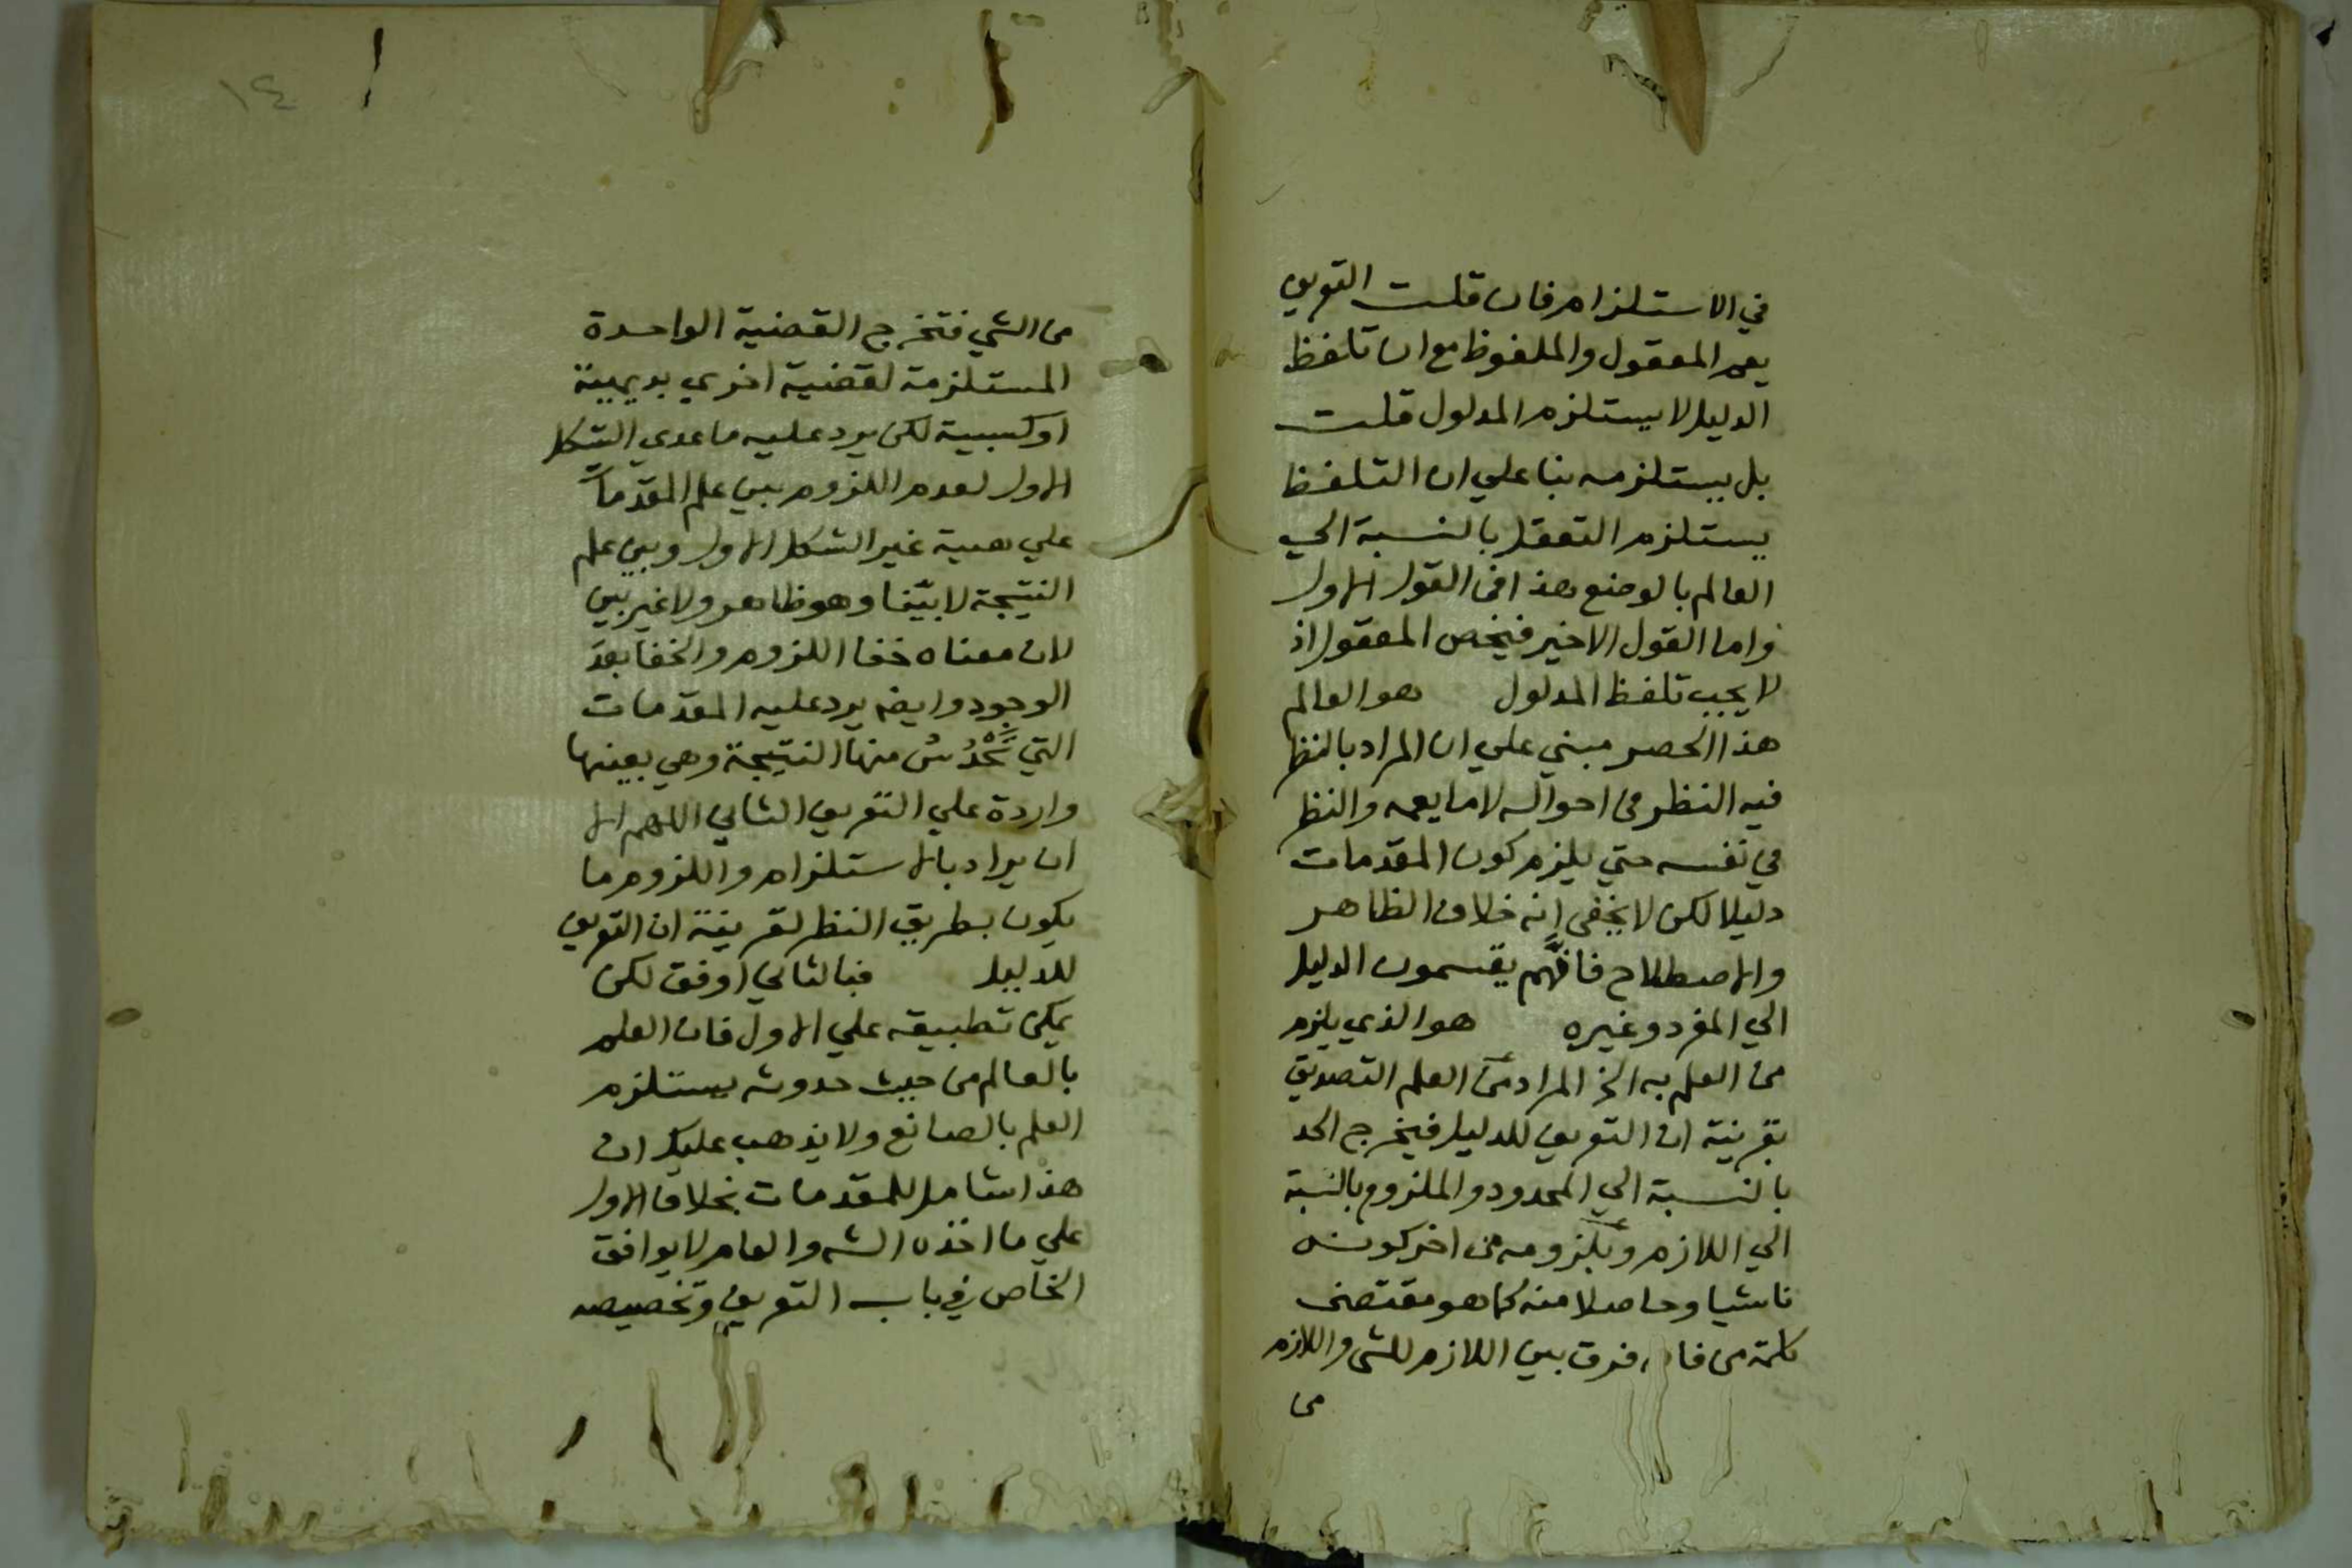 في الاستلزام فان قلت التعريف
يعم المعقول والملفوظ مع ان تلفظ
الدليل لا يستلزم المدلول قلت
بل يستلزمه بنا علي ان التلفظ
يستلزم التعقل بالنسبة الي
العالم بالوضع هذا في القول الاول
واما القول الاخير فيخص المعقول اذ
لا يجب تلفظ المدلول هو العالم
هذا الحصر مبني علي ان المراد بالنظر
فيه النظر في احواله لا ما يعمه والنظر
في نفسه حتي يلزم كون المقدمات
دليلا لكن لا يخفى انه خلاف الظاهر
والاصطلاح فانهم يقسمون الدليل
الي المفرد وغيره هو الذي يلزم
من العلم به الخ المراد من العلم التصديق
بقرينة ان التعريف للدليل فيخرج الحد
بالنسبة الي المحدود والملزوم بالنسبة
الي اللازم وبلزومه من اخر كونه
ناشيا وحاصلا منه كما هو مقتضى
كلمة من فا فرق بين اللازم للشي واللازم
من
١٤
من الشي فتخرج القضية الواحدة
المستلزمة لقضية اخري بديهية
او كسبية لكن يرد عليه ما عدي الشكل
الاول لعدم اللزوم بين علم المقدمات
علي هيية غير الشكل الاول وبين علم
النتيجة لا بيّنا وهو ظاهر ولا غير بين
لان معناه خفا اللزوم والخفا بعد
الوجود وايضه يرد عليه المقدمات
التي تَحْدُسُ منها النتيجة وهي بعينها
واردة علي التعريف الثاني اللهم الا
ان يراد بالاستلزام واللزوم ما
يكون بطريق النظر لقرينة ان التعريف
للدليل فبالثاني اوفق لكن
يمكن تطبيقه علي الاول فان العلم
بالعالم من حيث حدوثه يستلزم
العلم بالصانع ولا يذهب عليك ان
هذا شامل للمقدمات بخلاف الاول
علي ما اخذه الشه والعام لا يوافق
الخاص في باب التعريف وتخصيصه